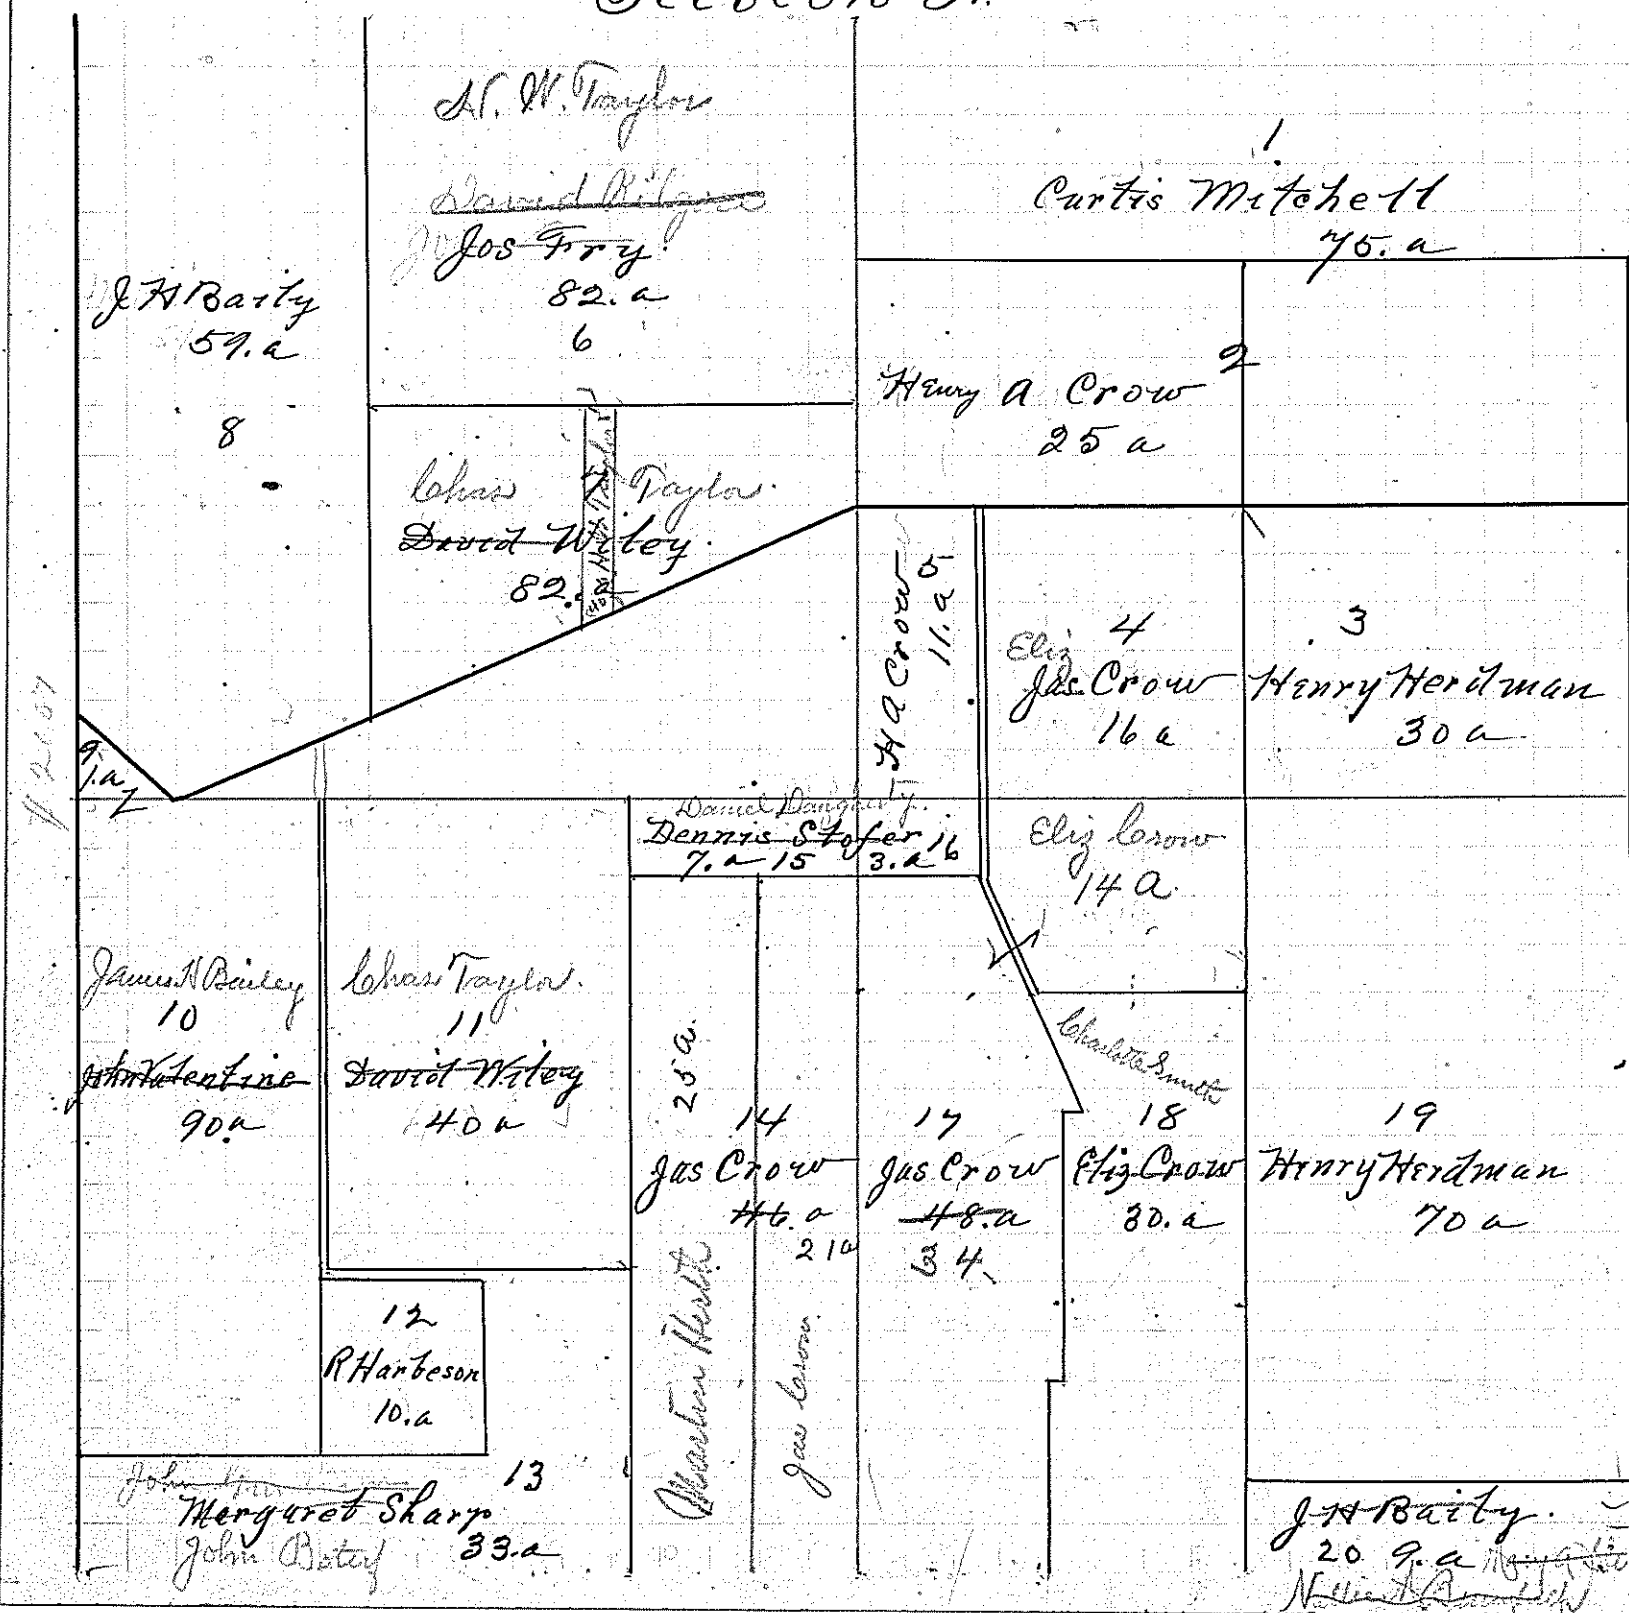 N. W. Taylor
David Kilgore
Jos Fry
82. a
6
1
Curtis Mitchell
75. a
J H Baily
59. a
8
2
Henry A Crow
25 a
Chas 7 Taylor
David Wiley
82. a
H A Crow
11. a 5
4
Eliz
Jas Crow
16 a
3
Henry Herdman
30 a
9
1. a
Daniel Daugherty
Dennis Stofer 16
7. a 15 3. a
Eliz Crow
14 a
James H Bailey
10
John Valentine
90 a
Chas Taylor
11
David Wiley
40 a
25 a
14
Jas Crow
46. a
21 a
17
Jas Crow
48. a
34
Charlotte Smith
18
Eliz Crow
30. a
19
Henry Herdman
70 a
12
R Harbeson
10. a
Jas Crow
John
13
Margaret Sharp
John
33. a
J H Baily
20 9. a